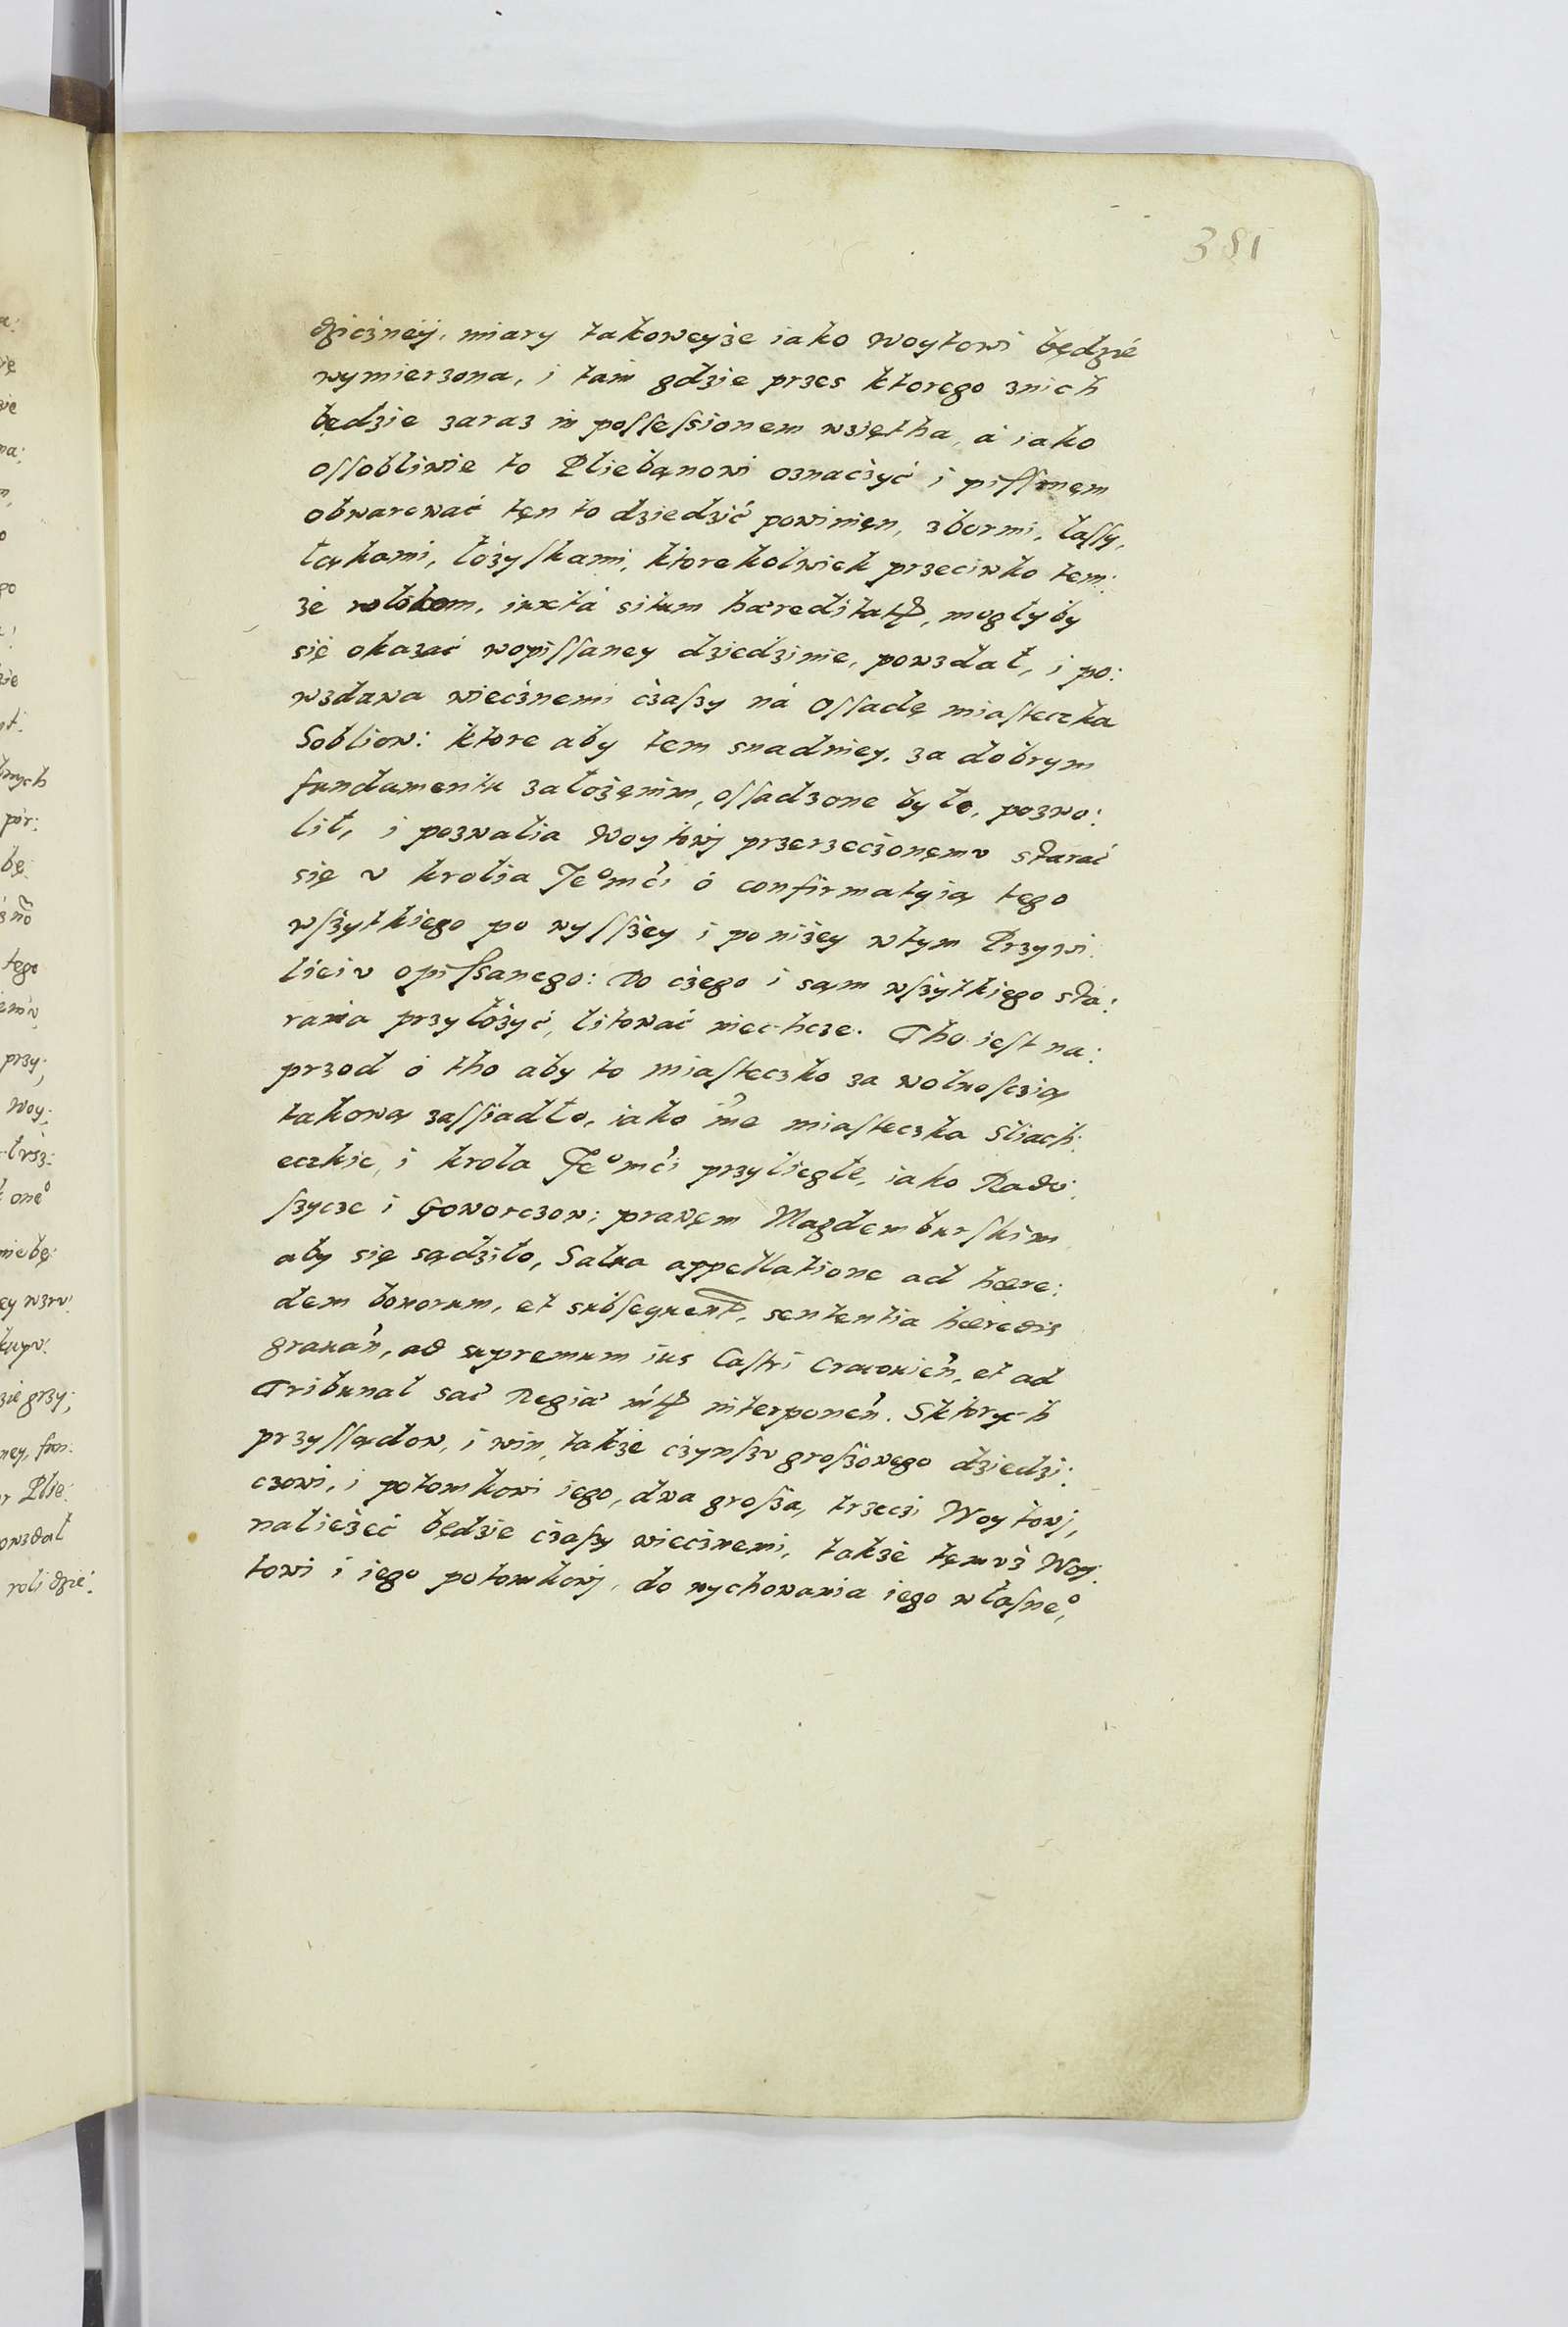 381
dzicżnéÿ, miary takoweyże iako woytowi będzie
wymierzona, i tam gdzie przes ktorego znich
będzie zaraz in poſſeſsionem wzięthą, á iako
oſſobliwie to Pliebąnowi oznacżyć i piſſmęm
obwarować tęn to dziedzić powinięn, zbormi, laſſy,
łąkami, łożyſkami, ktorekolwiek przeciwko tem:
że wlokom, iuxtá situm hæreditatis, mogłyby
się okazać wopiſſaney dziedzinie, powzdał, i po:
wzdawa wiecżnemi cżaſzy ná Oſſadę miaſteczka
Soblion: ktore aby tem snadniey, za dobrym
fundamentu załozęnim, oſſadzone było, pozwo:
lił, i pozwalia Woytowj przerzecżonęmu starać
się v krolia Jeᵒmći ó confirmatyią tego
wſżytkiego po wyſſżey i poniżey wtym Przywi:
lieiu opiſsanego: Do cżego i sąm wſżytkięgo sta:
rania przyłożyć, litować niechcze. Tho ieſt na:
przod ó tho aby to miaſteczko za wolnoſczią
takową zaſſiadło, iako ine miaſteczka Sliach:
eczkie, i krola Jeᵒmći przyliegłe, iako Rado:
ſzycze i Goworczow; prawęm Magdemburſkim
aby się sądziło, Salua appellatione ad hære:
dem bonorum, et subſequent, sententia hæredis
grauań, ad supremum ius Caſtri Crauouień, et ad
Tribunal sać Regiæ mtis interponeń. Sktorych
przyſſądow, i win, także cżynſzu groſżowego dziedzi:
czowi, i potomkowi iego, dwa groſza, trzeczi Woytowj,
nalieżeć będzie cżaſzy wiecżnemi, także tęmuż Woy:
towi i iego potomkowj, do wychowania iego właſneᵒ,